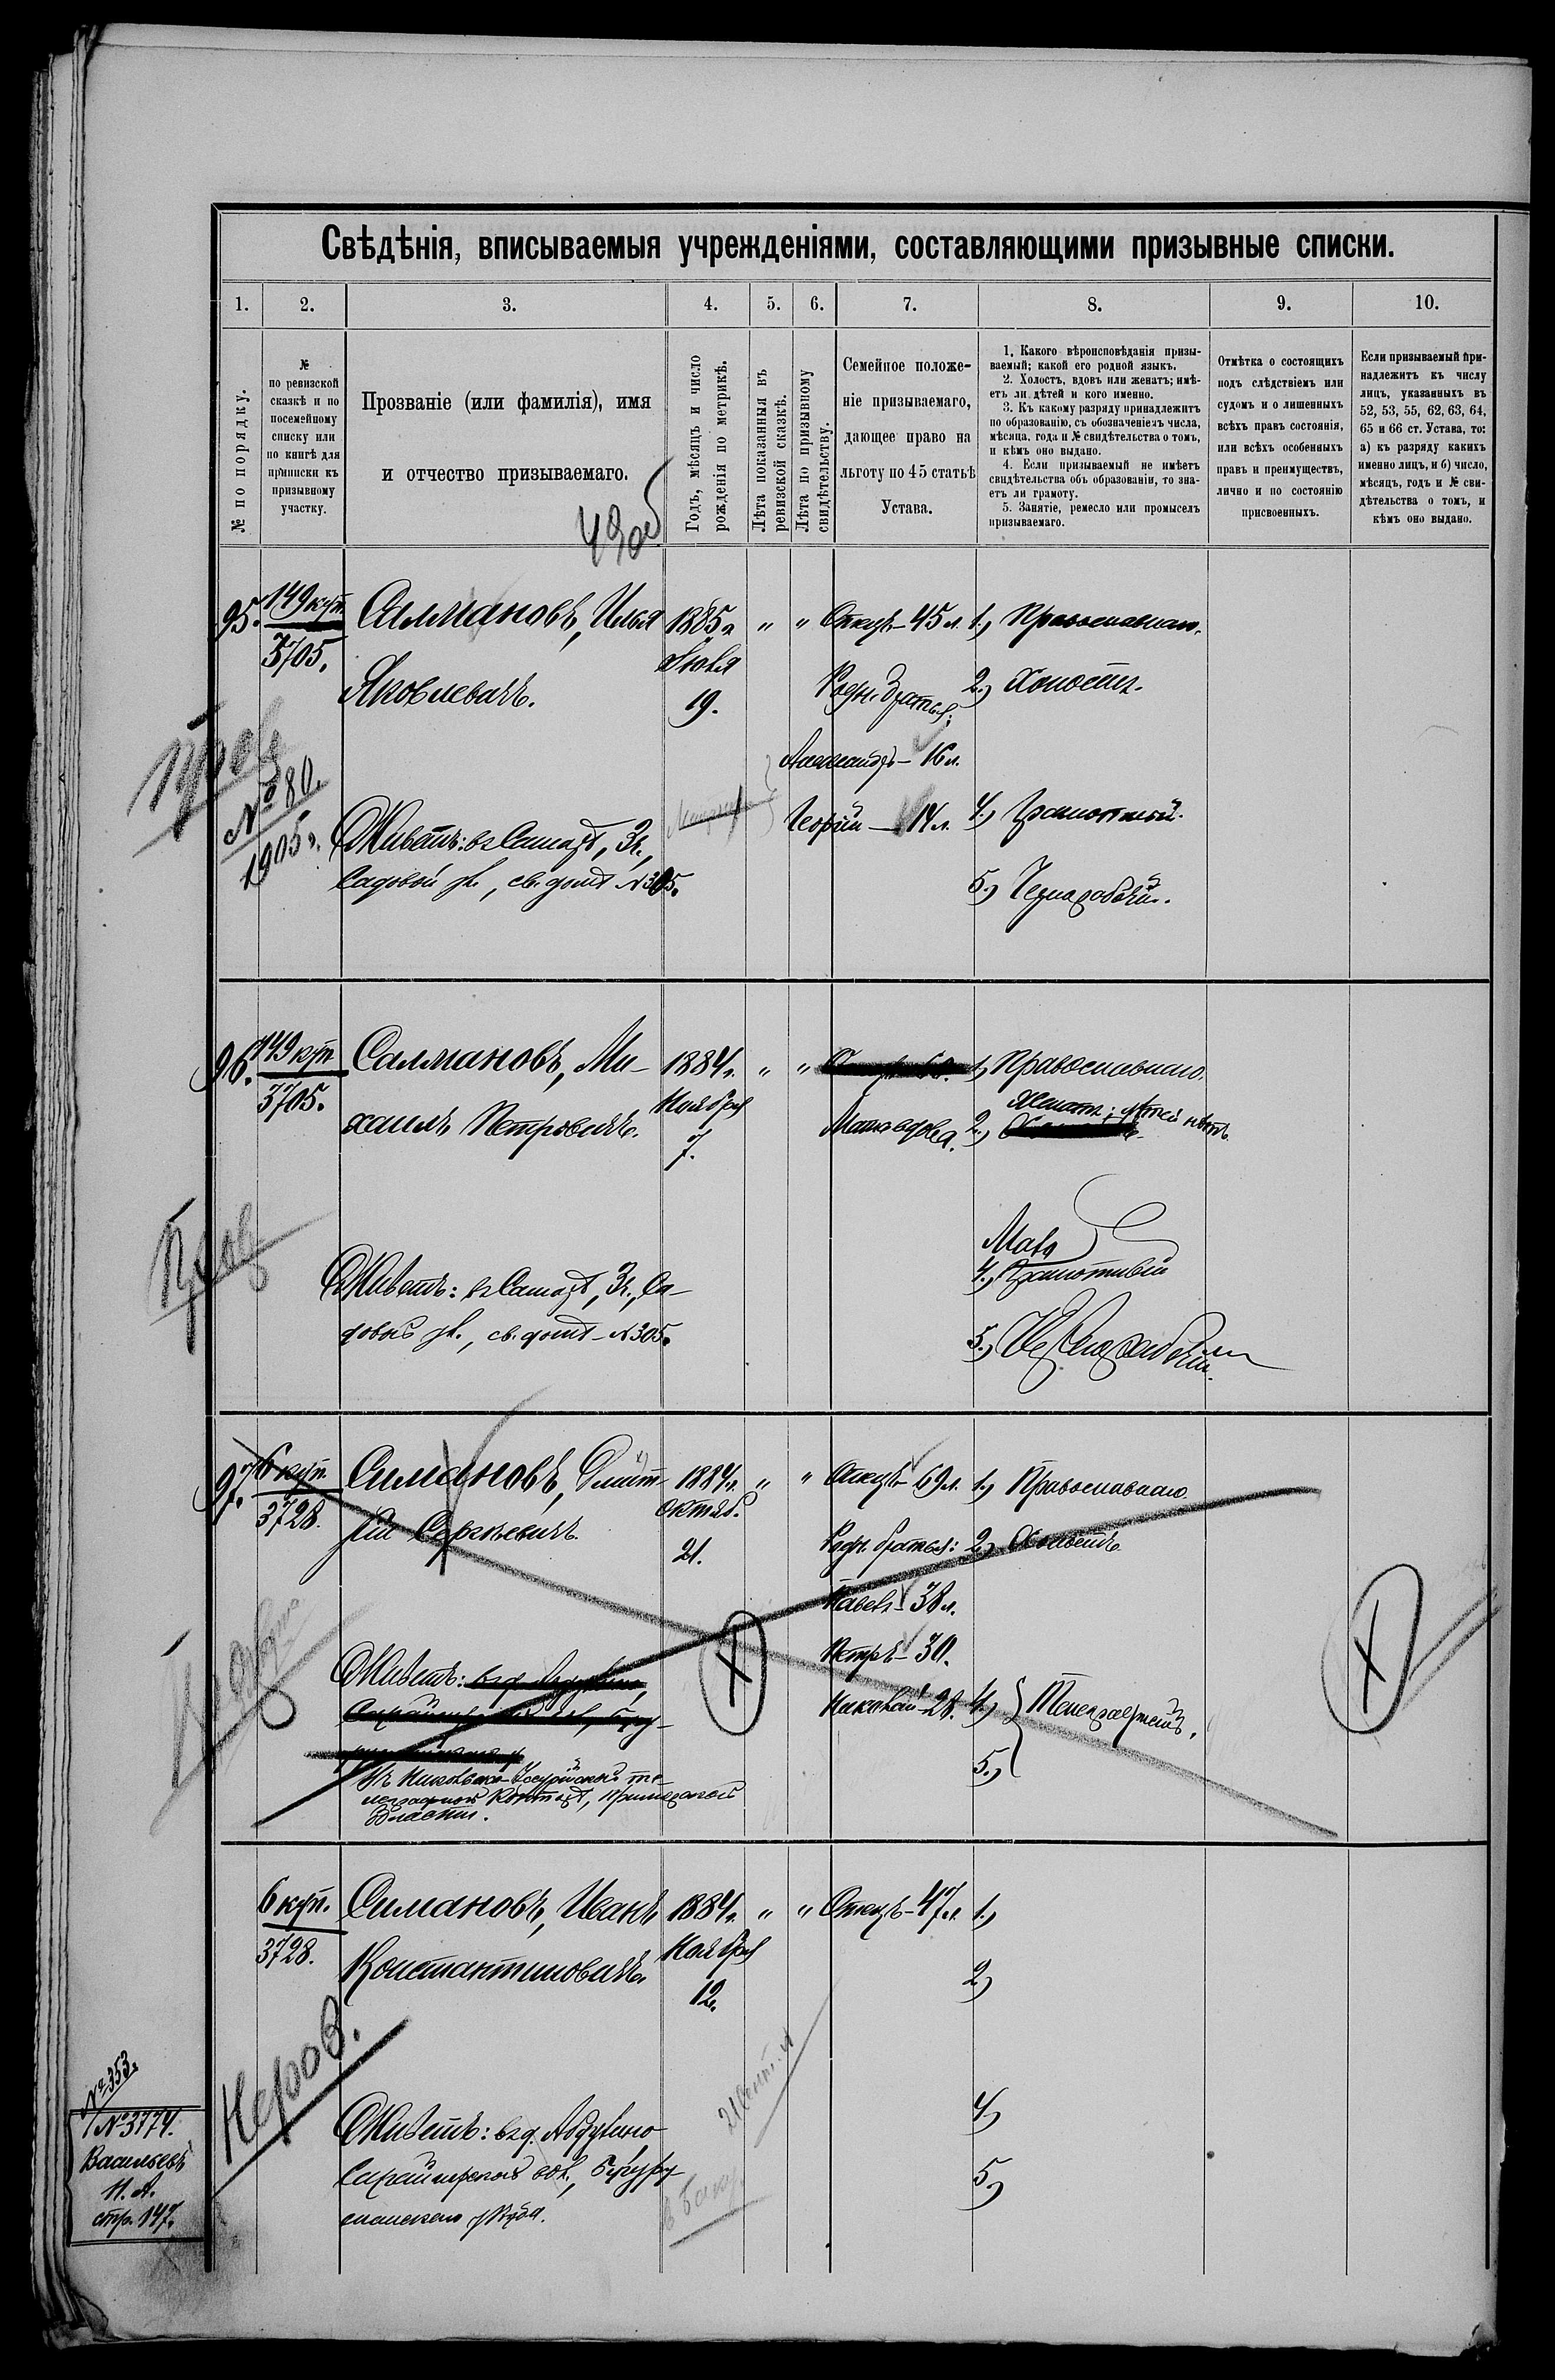 Свѣдѣнія, вписываемыя учрежденіями, составляющими призывные списки.
1. 2. 3. 4. 5. 6. 7. 8. 9. 10.
№ по порядку.
№
по ревизской
сказкѣ и по
посемейному
списку или
по книгѣ для
приписки къ
призывному
участку.
Прозваніе (или фамилія), имя
и отчество призываемаго.
Годъ, мѣсяцъ и число
рожденія по метрикѣ.
Лѣта показанныя въ
ревизской сказкѣ.
Лѣта по призывному
свидѣтельству.
Семейное положе-
ніе призываемаго,
дающее право на
льготу по 45 статьѣ
Устава.
1. Какого вѣроисповѣданія призы-
ваемый; какой его родной языкъ.
2. Холостъ, вдовъ или женатъ; имѣ-
етъ ли дѣтей и кого именно.
3. Къ какому разряду принадлежитъ
по образованію, съ обозначеніемъ числа,
мѣсяца, года и № свидѣтельства о томъ,
и кѣмъ оно выдано.
4. Если призываемый не имѣетъ
свидѣтельства объ образованіи, то зна-
етъ ли грамоту.
5. Занятіе, ремесло или промыселъ
призываемаго.
Отмѣтка о состоящихъ
подъ слѣдствіемъ или
судомъ и о лишенныхъ
всѣхъ правъ состоянія,
или всѣхъ особенныхъ
правъ и преимуществъ,
лично и по состоянію
присвоенныхъ.
Если призываемый при-
надлежитъ къ числу
лицъ, указанныхъ въ
52, 53, 55, 62, 63, 64,
65 и 66 ст. Устава, то:
а) къ разряду какихъ
именно лицъ, и б) число,
мѣсяцъ, годъ и № сви-
дѣтельства о томъ, и
кѣмъ оно выдано.
95. 149 куп. Салмановъ, Илья 1885 г. " " Отецъ - 45 л. 1.) Православнаго.
3705. Яковлевичъ. Іюля 19. Родн. братья: 2.) Холостъ.
Александръ - 16 л.
№ 80.
1905 г.
Георгій - 14 л. 4.) Грамотный.
Живетъ: въ Самарѣ, 3 ч.,
Садовой ул., св. домѣ № 305.
5.) Чернорабочій.
96. 149 куп. Салмановъ, Ми- 1884 г. " " 1.) Православнаго.
3705. хаилъ Петровичъ. Ноября 7. Мать вдова. 2.) Женатъ; дѣтей нѣтъ.
Живетъ: въ Самарѣ, 3 ч., Са-
довой ул., св. домѣ - № 305.
Мало
4.) Грамотный
5.) Чернорабочій.
97. 6 куп. Симановъ, Дмит- 1884 г. " " Отецъ - 69 л. 1.) Православнаго
3728. рій Сергѣевичъ. Октяб. 21. Родн. братья: 2.) Холостъ
Павелъ - 38 л.
Петръ - 30.
Николай - 28. 4.) Телеграфистъ.
5.)
Живетъ:
Въ Никольско-Уссурійской те-
леграфной конторѣ, Приморской
области.
6 куп. Симановъ, Иванъ 1884 г. " " Отецъ - 47 л. 1.)
3728. Константиновичъ. Ноября 12. 2.)
Живетъ: въ д. Абдулино 4.)
Сарайгирской вол., Бугуру- 5.)
сланскаго уѣзда.
№ 353.
№ 3774.
Васильевъ
Н. А.
стр. 147.